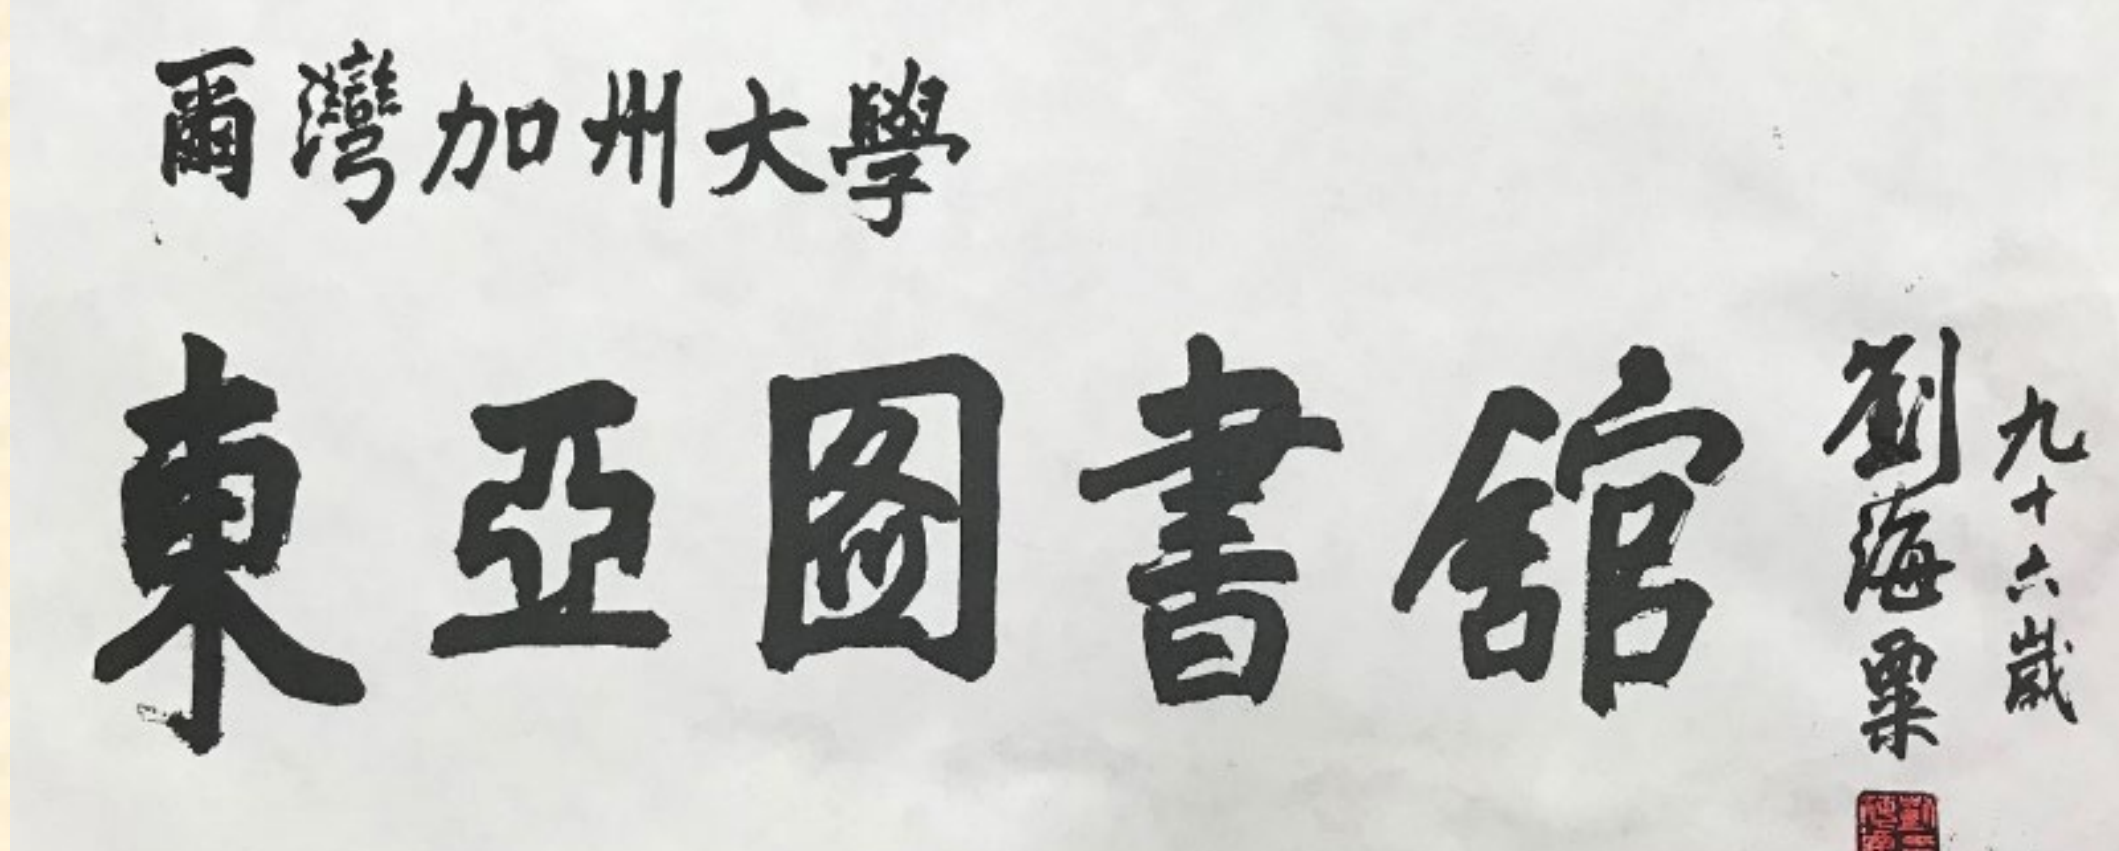 爾灣加州大學
東亞图書舘
劉海粟
九十六歲